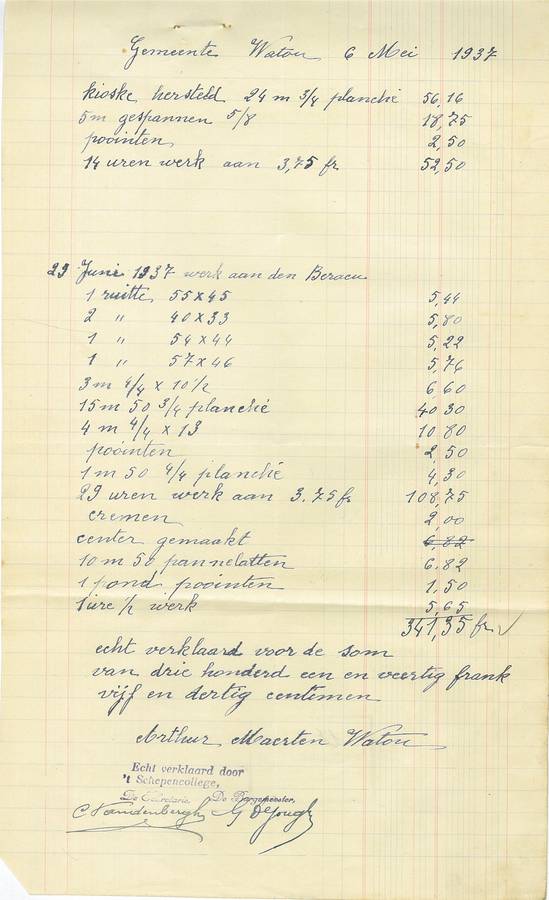 Gemeente Watou 6 Mei 1937
kioske hersteld 24 m 3/4 planchè 56,16
5m gespannen 5/8 18,75
pointen 2,50
14 uren werk aan 3,75 fr 52,50
29 Juni 1937 werk aan den Bureau
1 ruitte 55 x 45 5,44
2 " 40 x 33 5,80
1 " 54 x 44 5,22
1 " 57 x 46 5,76
3 m 4/4 x 10 1/2 6,60
15 m 50 3/4 planchè 40,30
4 m 4/4 x 13 10,80
pointen 2,50
1 m 50 4/4 planchè 4,30
29 uren werk aan 3.75 fr 108,75
cremen 2,00
center gemaakt 6,82
10 m 50 pannelatten 6.82
1 pond pointen 1,50
1 ure 1/2 werk 5,65
341,35 fr ✓
echt verklaard voor de som
van drie honderd een en veertig frank
vijf en dertig centimen
Arthur Maerten Watou
Echt verklaard door
't Schepencollege,
De Secretaris De Burgemeester,
C Vandenbergh G D